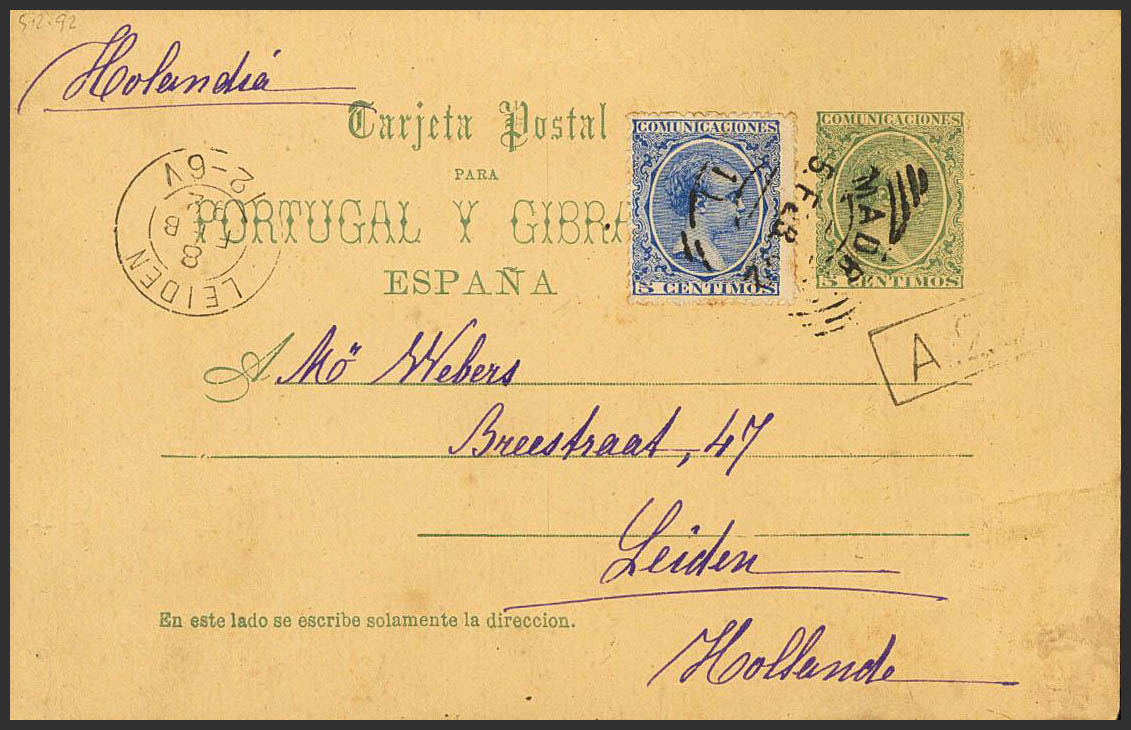 5-2-92
Holandia
Tarjeta Postal
PARA
PORTUGAL Y GIBRA
ESPAÑA
COMUNICACIONES
5 CENTIMOS
COMUNICACIONES
5 CENTIMOS
MADRI
5 FEB
LEIDEN
8 FEB
12-6V
A
A Mö Webers
Breestraat, 47
Leiden
Hollande
En este lado se escribe solamente la direccion.